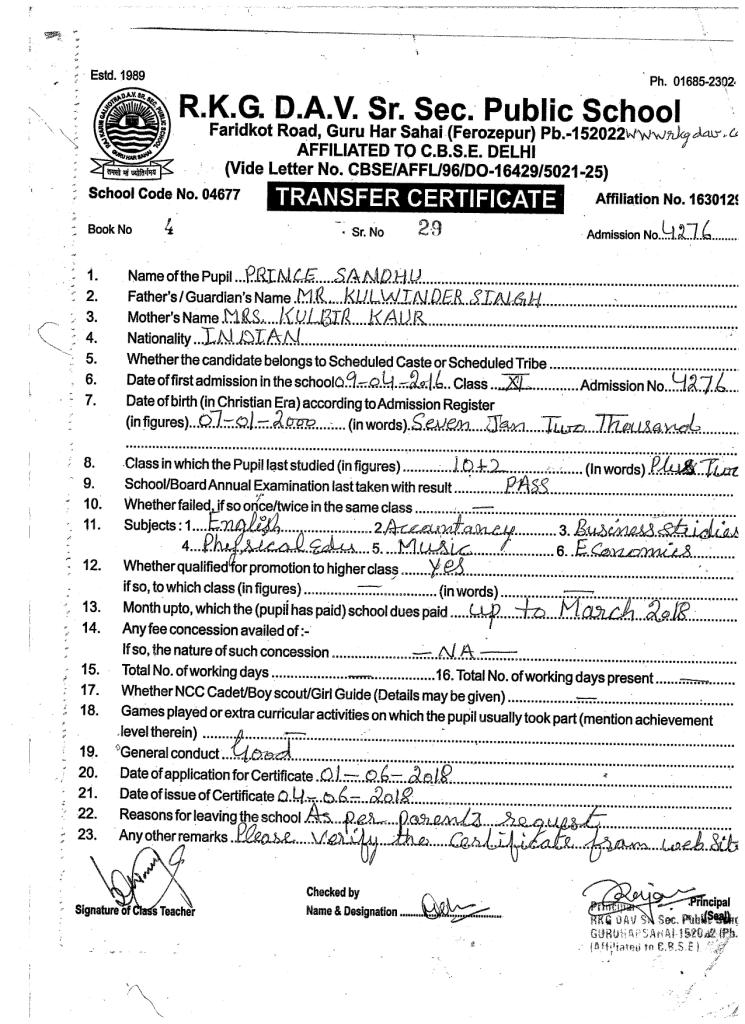 Estd. 1989
Ph. 01685-2302
R.K.G. D.A.V. Sr. Sec. Public School
Faridkot Road, Guru Har Sahai (Ferozepur) Pb.-152022 www.rkgdav.c
AFFILIATED TO C.B.S.E. DELHI
(Vide Letter No. CBSE/AFFL/96/DO-16429/5021-25)
School Code No. 04677 TRANSFER CERTIFICATE Affiliation No. 1630129
Book No 4 Sr. No 29 Admission No. 4276
1. Name of the Pupil PRINCE SANDHU
2. Father's / Guardian's Name MR. KULWINDER SINGH
3. Mother's Name MRS. KULBIR KAUR
4. Nationality INDIAN
5. Whether the candidate belongs to Scheduled Caste or Scheduled Tribe
6. Date of first admission in the school 09-04-2016 Class XI Admission No. 4276
7. Date of birth (in Christian Era) according to Admission Register
(in figures) 07-01-2000 (in words) Seven Jan Two Thousand
8. Class in which the Pupil last studied (in figures) 10+2 (In words) Plus Two
9. School/Board Annual Examination last taken with result PASS
10. Whether failed, if so once/twice in the same class —
11. Subjects : 1. English 2. Accountancy 3. Business Studies
4. Physical Edu 5. Music 6. Economics
12. Whether qualified for promotion to higher class yes
if so, to which class (in figures) — (in words) —
13. Month upto, which the (pupil has paid) school dues paid up to March 2018
14. Any fee concession availed of :-
If so, the nature of such concession — NA —
15. Total No. of working days — 16. Total No. of working days present —
17. Whether NCC Cadet/Boy scout/Girl Guide (Details may be given) —
18. Games played or extra curricular activities on which the pupil usually took part (mention achievement
level therein) —
19. General conduct Good
20. Date of application for Certificate 01-06-2018
21. Date of issue of Certificate 04-06-2018
22. Reasons for leaving the school As per parents request
23. Any other remarks Please verify the certificate from web. Site
Signature of Class Teacher
Checked by
Name & Designation
Principal
(Seal)
Principal
RKG DAV Sr. Sec. Public
GURUHARSAHAI-152022 (Pb.
(Affiliated to C.B.S.E)